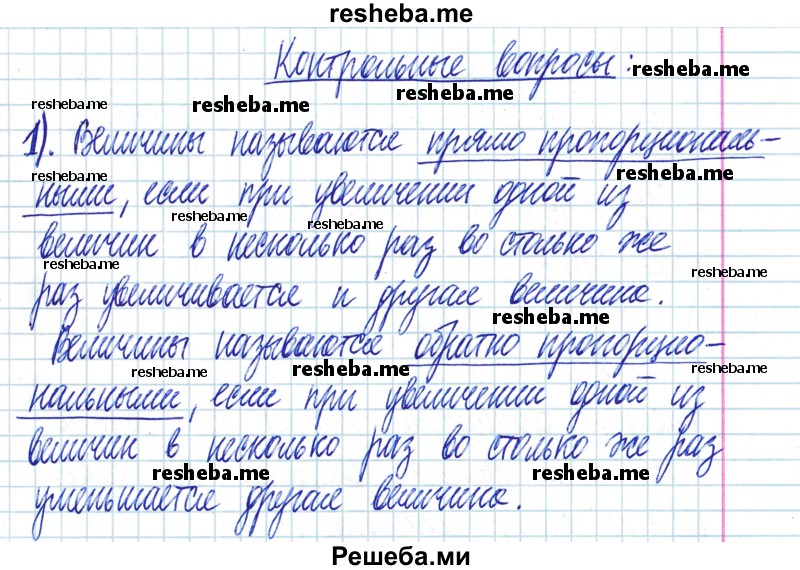 resheba.me
Контрольные вопросы:
resheba.me
resheba.me
resheba.me
resheba.me
1). Величины называются прямо пропорциональ-
resheba.me
resheba.me
ными, если при увеличении одной из
resheba.me
resheba.me
величин в несколько раз во столько же
resheba.me
resheba.me
раз увеличивается и другая величина.
resheba.me
Величины называются обратно пропорцио-
resheba.me
resheba.me
resheba.me
нальными, если при увеличении одной из
величин в несколько раз во столько же раз
resheba.me
resheba.me
уменьшается другая величина.
Решеба.ми